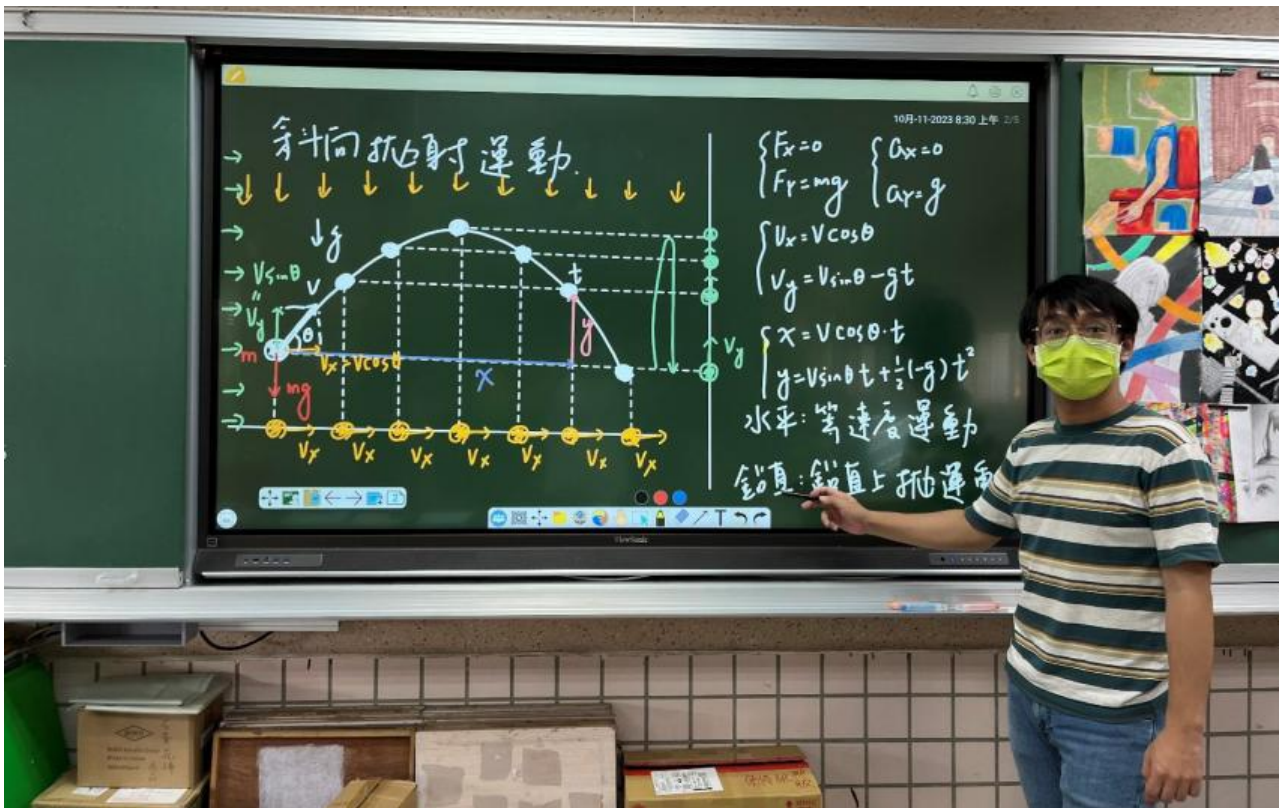 10月-11-2023 8:30 上午 2/5
斜向拋射運動.
↓g
Vsinθ
"
Vy
V
θ
m
Vx=Vcosθ
mg
x
y
t
Vy
Vx Vx Vx Vx Vx Vx Vx
Fx=0 ax=0
Fy=mg ay=g
Vx=Vcosθ
Vy=Vsinθ-gt
x=Vcosθ·t
y=Vsinθt+½(-g)t²
水平:等速度運動
鉛直:鉛直上拋運動
ViewSonic